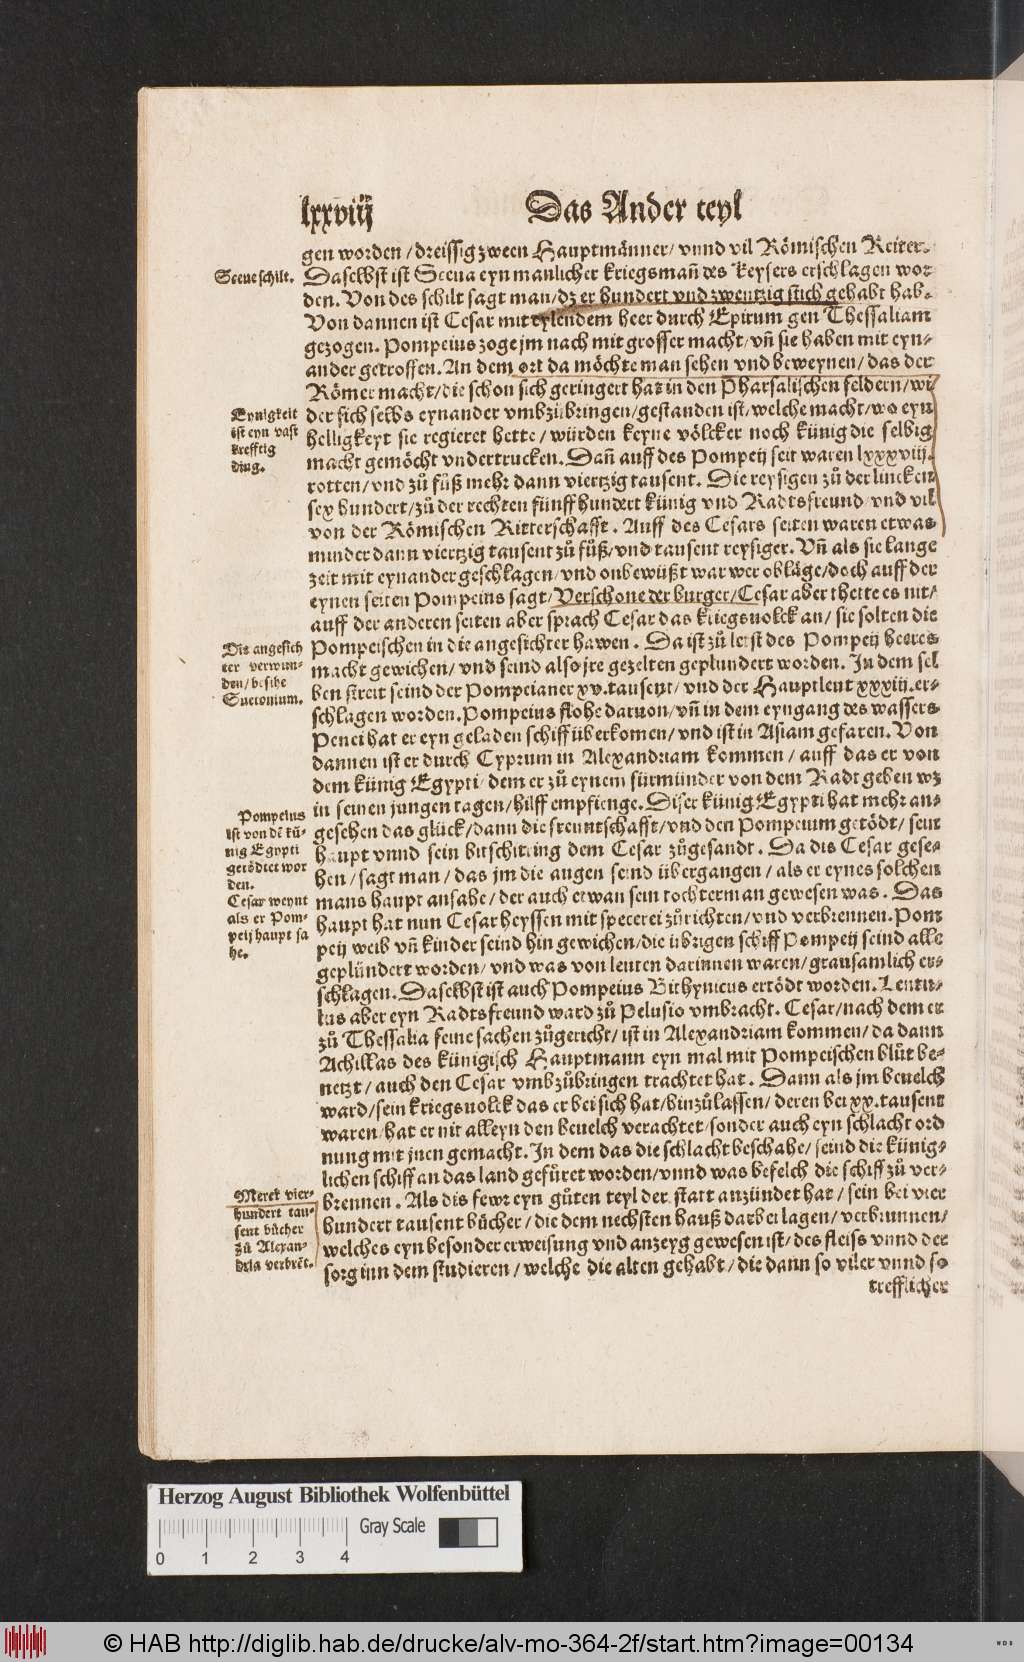 lxxviij
Das Ander teyl
gen worden / dreissig zween Hauptmänner / vnnd vil Römischen Reiter.
Sceue schilt.
Daselbst ist Sceua eyn manlicher kriegsmañ des Keysers erschlagen wor
den. Von des schilt sagt man / dz er hundert vnd zwentzig stich gehabt hab.
Von dannen ist Cesar mit eylendem heer durch Epirum gen Thessaliam
gezogen. Pompeius zoge jm nach mit grosser macht / vñ sie haben mit eyn-
ander getroffen. An dem ort da möchte man sehen vnd beweynen / das der
Römer macht / die schon sich geringert hat in den Pharsalischen feldern / wi
Eynigkeit
ist eyn vast
krefftig
ding.
der sich selbs eynander vmbzůbringen / gestanden ist / welche macht / wo eyn
helligkeyt sie regieret hette / würden keyne völcker noch künig die selbig
macht gemöcht vndertrucken. Dañ auff des Pompeij seit waren lxxxviij.
rotten / vnd zů fůß mehr dann viertzig tausent. Die reysigen zů der lincken
sex hundert / zů der rechten fünff hundert künig vnd Radtsfreund vnd vil
von der Römischen Ritterschafft. Auff des Cesars seiten waren etwas
minder dann viertzig tausent zů fůß / vnd tausent reysiger. Vñ als sie lange
zeit mit eynander geschlagen / vnd onbewüßt war wer obläge / doch auff der
eynen seiten Pompeius sagt / Verschone der burger / Cesar aber thette es nit /
auff der anderen seiten aber sprach Cesar das kriegsuolck an / sie solten die
Die angesich
ter verwun-
den / besihe
Suetonium.
Pompeischen in die angesichter hawen. Da ist zů letst des Pompeij heeres
macht gewichen / vnd seind also jre gezelten geplundert worden. In dem sel
ben streit seind der Pompeianer xv. tausent / vnd der Hauptleut xxxiij. er-
schlagen worden. Pompeius flohe daruon / vñ in dem eyngang des wassers
Penei hat er eyn geladen schiff überkomen / vnd ist in Asiam gefaren. Von
dannen ist er durch Cyprum in Alexandriam kommen / auff das er von
dem künig Egypti / dem er zů eynem fürmünder von dem Radt geben wz
in seinen jungen tagen / hilff empfienge. Diser künig Egypti hat mehr an-
Pompeius
ist von dē kü-
nig Egypti
getödtet wor
den.
gesehen das glück / dann die freuntschafft / vnd den Pompeium getödt / sein
haupt vnnd sein bitschirring dem Cesar zůgesandt. Da dis Cesar gese-
hen / sagt man / das jm die augen seind übergangen / als er eynes solchen
Cesar weynt
als er Pom-
peij haupt sa
he.
mans haupt ansahe / der auch etwan sein tochterman gewesen was. Das
haupt hat nun Cesar heyssen mit specerei zůrichten / vnd verbrennen. Pom
peij weib vñ kinder seind hin gewichen / die übrigen schiff Pompeij seind alle
geplündert worden / vnd was von leuten darinnen waren / grausamlich er-
schlagen. Daselbst ist auch Pompeius Bithynicus ertödt worden. Lentu-
lus aber eyn Radtsfreund ward zů Pelusio vmbracht. Cesar / nach dem er
zů Thessalia seine sachen zůgericht / ist in Alexandriam kommen / da dann
Achillas des künigisch Hauptmann eyn mal mit Pompeischen blůt be-
netzt / auch den Cesar vmbzůbringen trachtet hat. Dann als jm beuelch
ward / sein kriegsuolck das er bei sich hat / hinzůlassen / deren bei xx. tausent
waren / hat er nit alleyn den beuelch verachtet / sonder auch eyn schlacht ord
nung mit jnen gemacht. In dem das die schlacht beschahe / seind die künig-
lichen schiff an das land gefüret worden / vnnd was befelch die schiff zů ver-
Merck vier-
hundert tau-
sent bücher
zů Alexan-
dria verbrēt.
brennen. Als dis fewr eyn gůten teyl der statt anzündet hat / sein bei vier
hundert tausent bücher / die dem nechsten hauß darbei lagen / verbrunnen /
welches eyn besonder erweisung vnd anzeyg gewesen ist / des fleiss vnnd der
sorg inn dem studieren / welche die alten gehabt / die dann so viler vnnd so
trefflicher
Herzog August Bibliothek Wolfenbüttel
Gray Scale
0 1 2 3 4
© HAB http://diglib.hab.de/drucke/alv-mo-364-2f/start.htm?image=00134